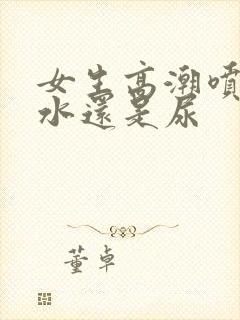 女生高潮噴
水還是尿
董卓